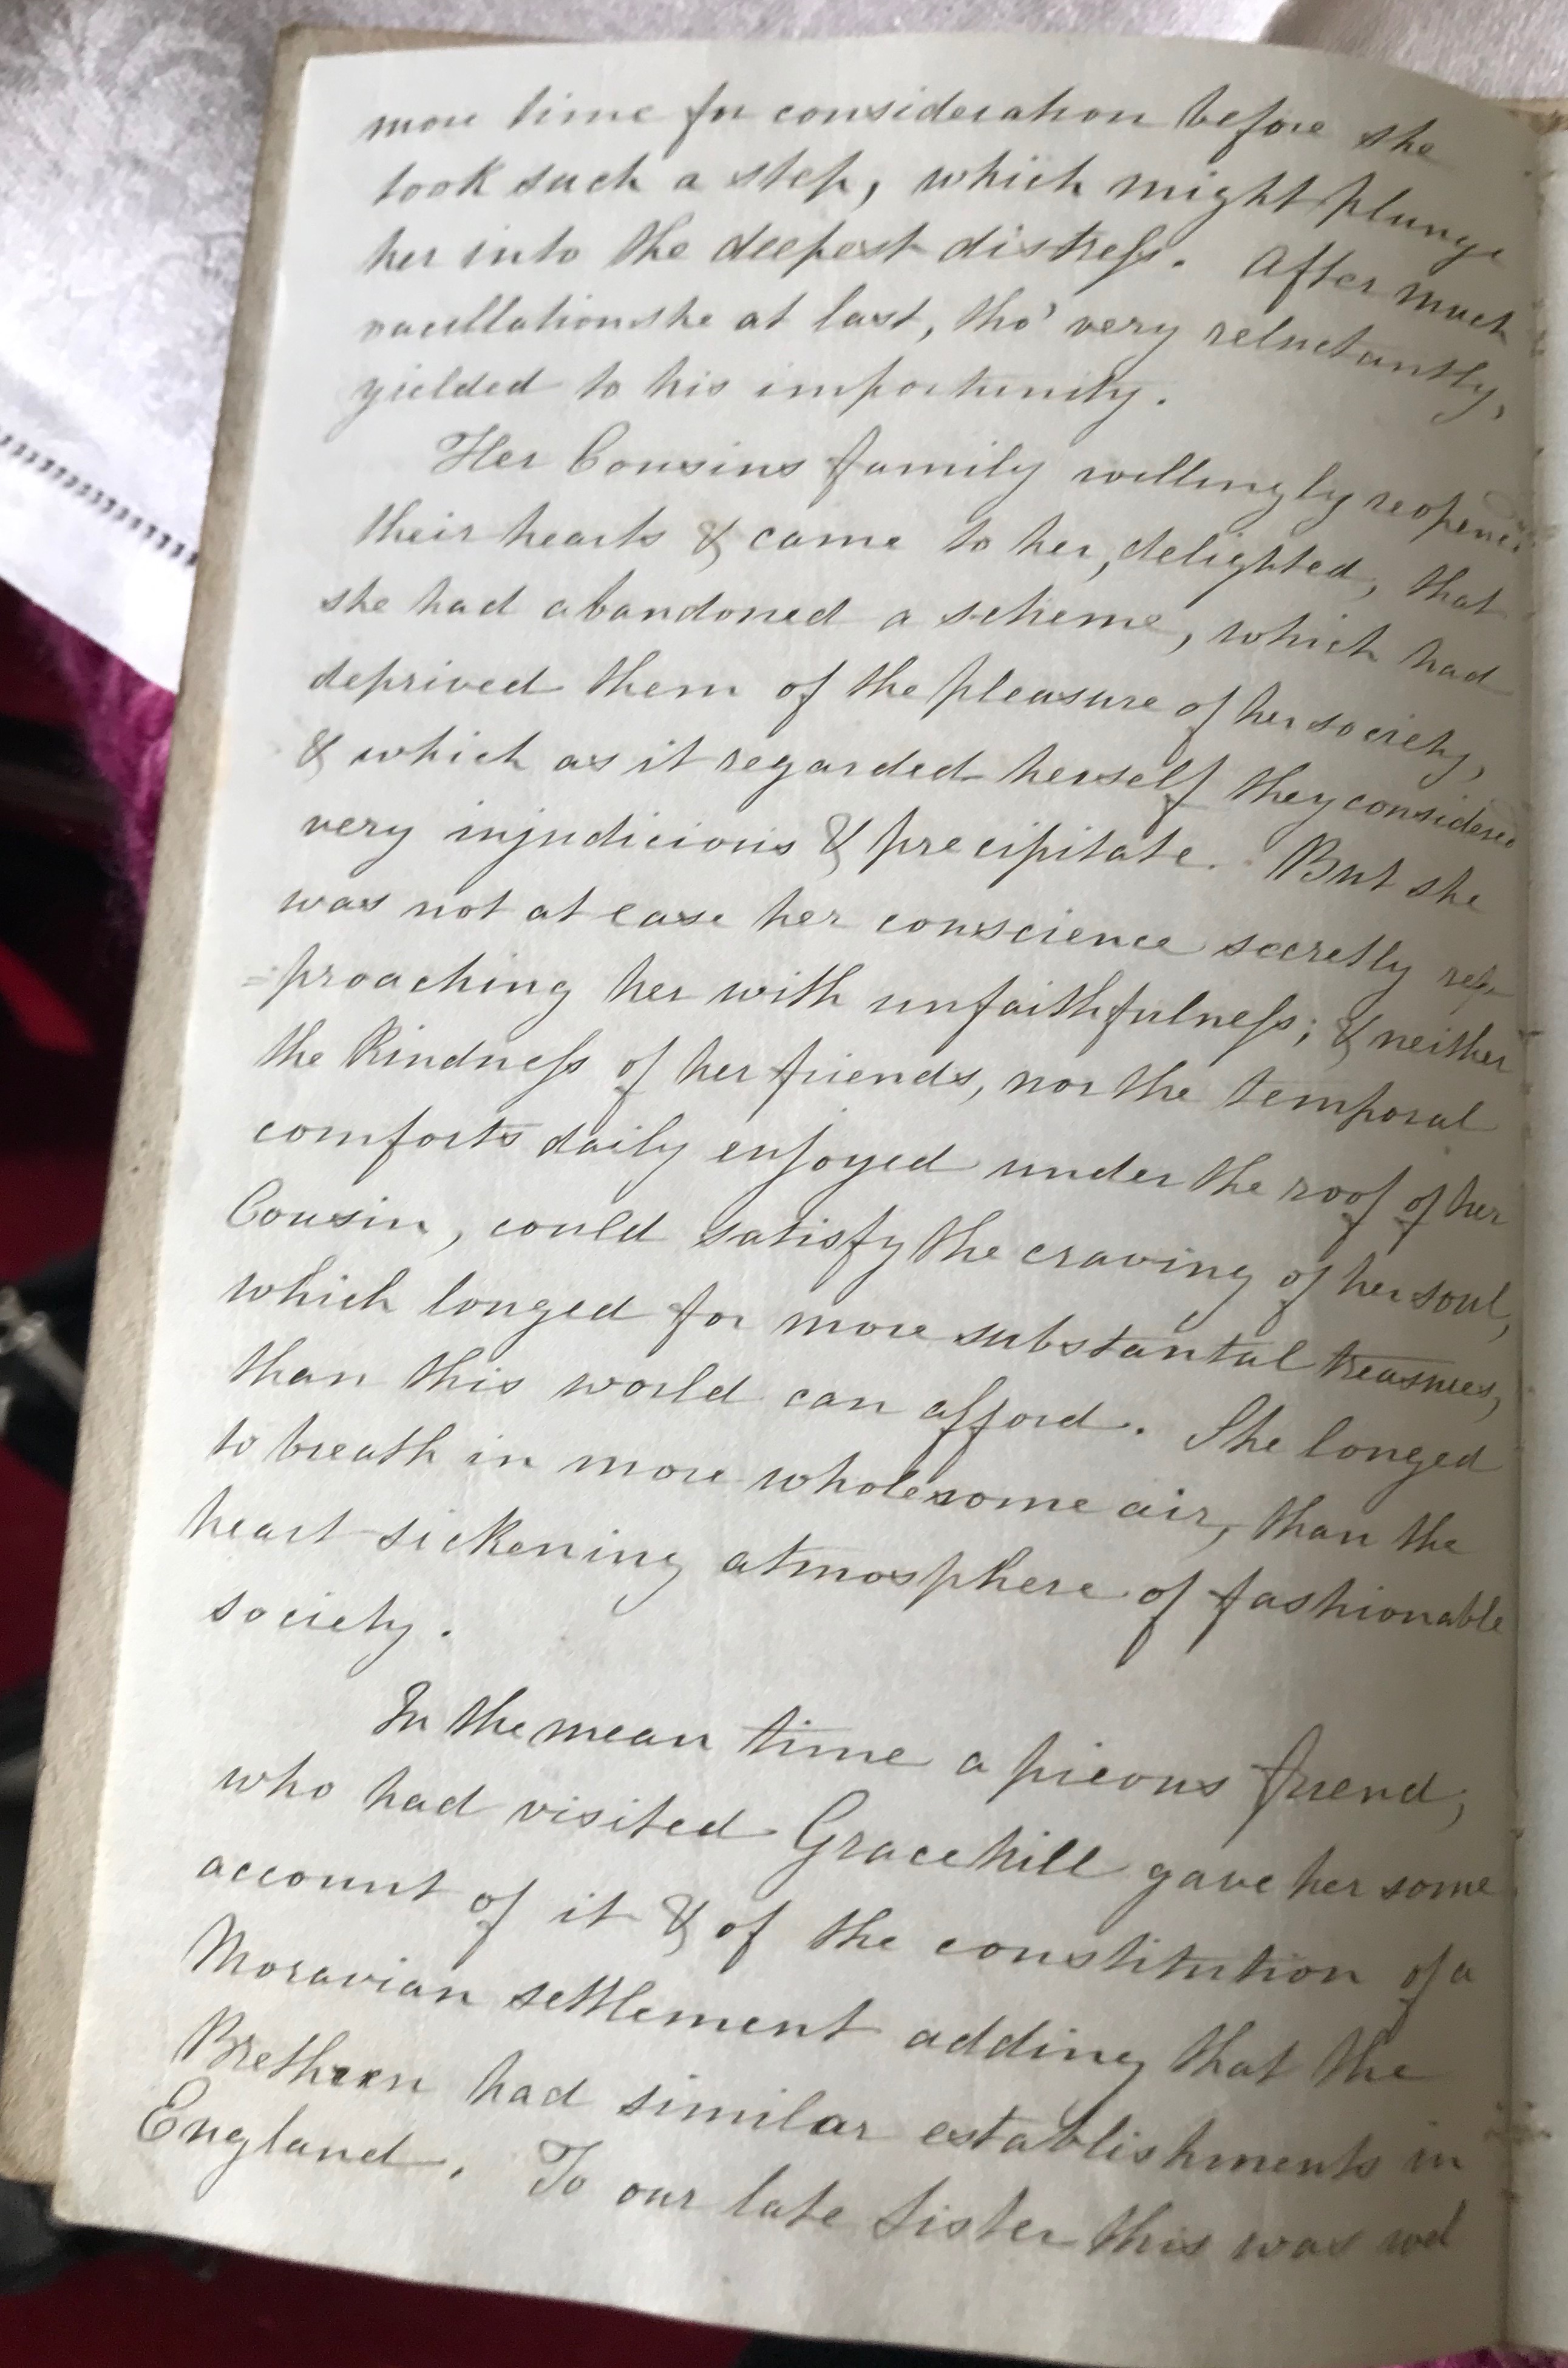 more time for consideration before she
took such a step, which might plunge
her into the deepest distress. After much
vacillation she at last, tho' very reluctantly,
yielded to his importunity.
Her Cousins family willingly reopened
their hearts & came to her, delighted, that
she had abandoned a scheme, which had
deprived them of the pleasure of her society,
& which as it regarded herself they considered
very injudicious & precipitate. But she
was not at ease her conscience secretly re
=proaching her with unfaithfulness; & neither
the kindness of her friends, nor the temporal
comforts daily enjoyed under the roof of her
Cousin, could satisfy the craving of her soul,
which longed for more substantial treasures,
than this world can afford. She longed
to breath in more wholesome air, than the
heart-sickening atmosphere of fashionable
society.
In the mean time a pieous friend,
who had visited Gracehill gave her some
account of it & of the constitution of a
Moravian settlement adding that the
Brethren had similar establishments in
England. To our late Sister this was